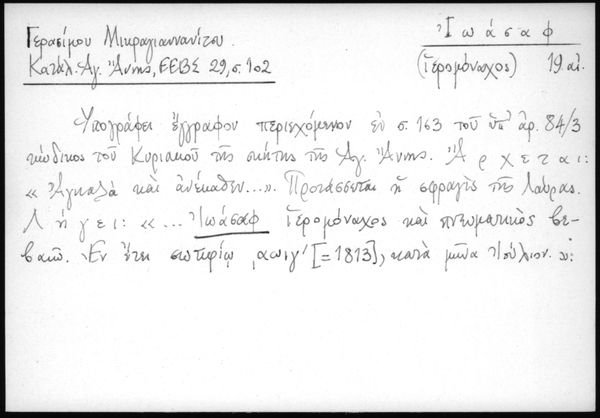 Γερασίμου Μικραγιαννανίτου.
Ἰωάσαφ
Κατάλ. Ἁγ. Ἄννης, ΕΕΒΣ 29, σ. 102
(ἱερομόναχος) 19 αἰ.
Ὑπογράφει ἔγγραφον περιεχόμενον ἐν σ. 163 τοῦ ὑπ' ἀρ. 84/3
κώδικος τοῦ Κυριακοῦ τῆς σκήτης τῆς Ἁγ. Ἄννης. Ἄρχεται:
« Ἀγκαλὰ καὶ ἀνέκαθεν...». Προτάσσεται ἡ σφραγὶς τῆς Λαύρας.
Λήγει: «... Ἰωάσαφ ἱερομόναχος καὶ πνευματικὸς βε-
βαιῶ. Ἐν ἔτει σωτηρίῳ ͵αωιγ' [=1813], κατὰ μῆνα Ἰούλιον.